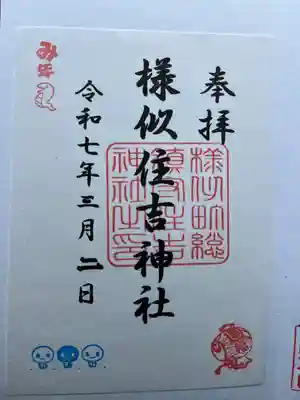 奉拝
様似住吉神社
令和七年三月二日
様似町総
鎮守住吉
神社之印